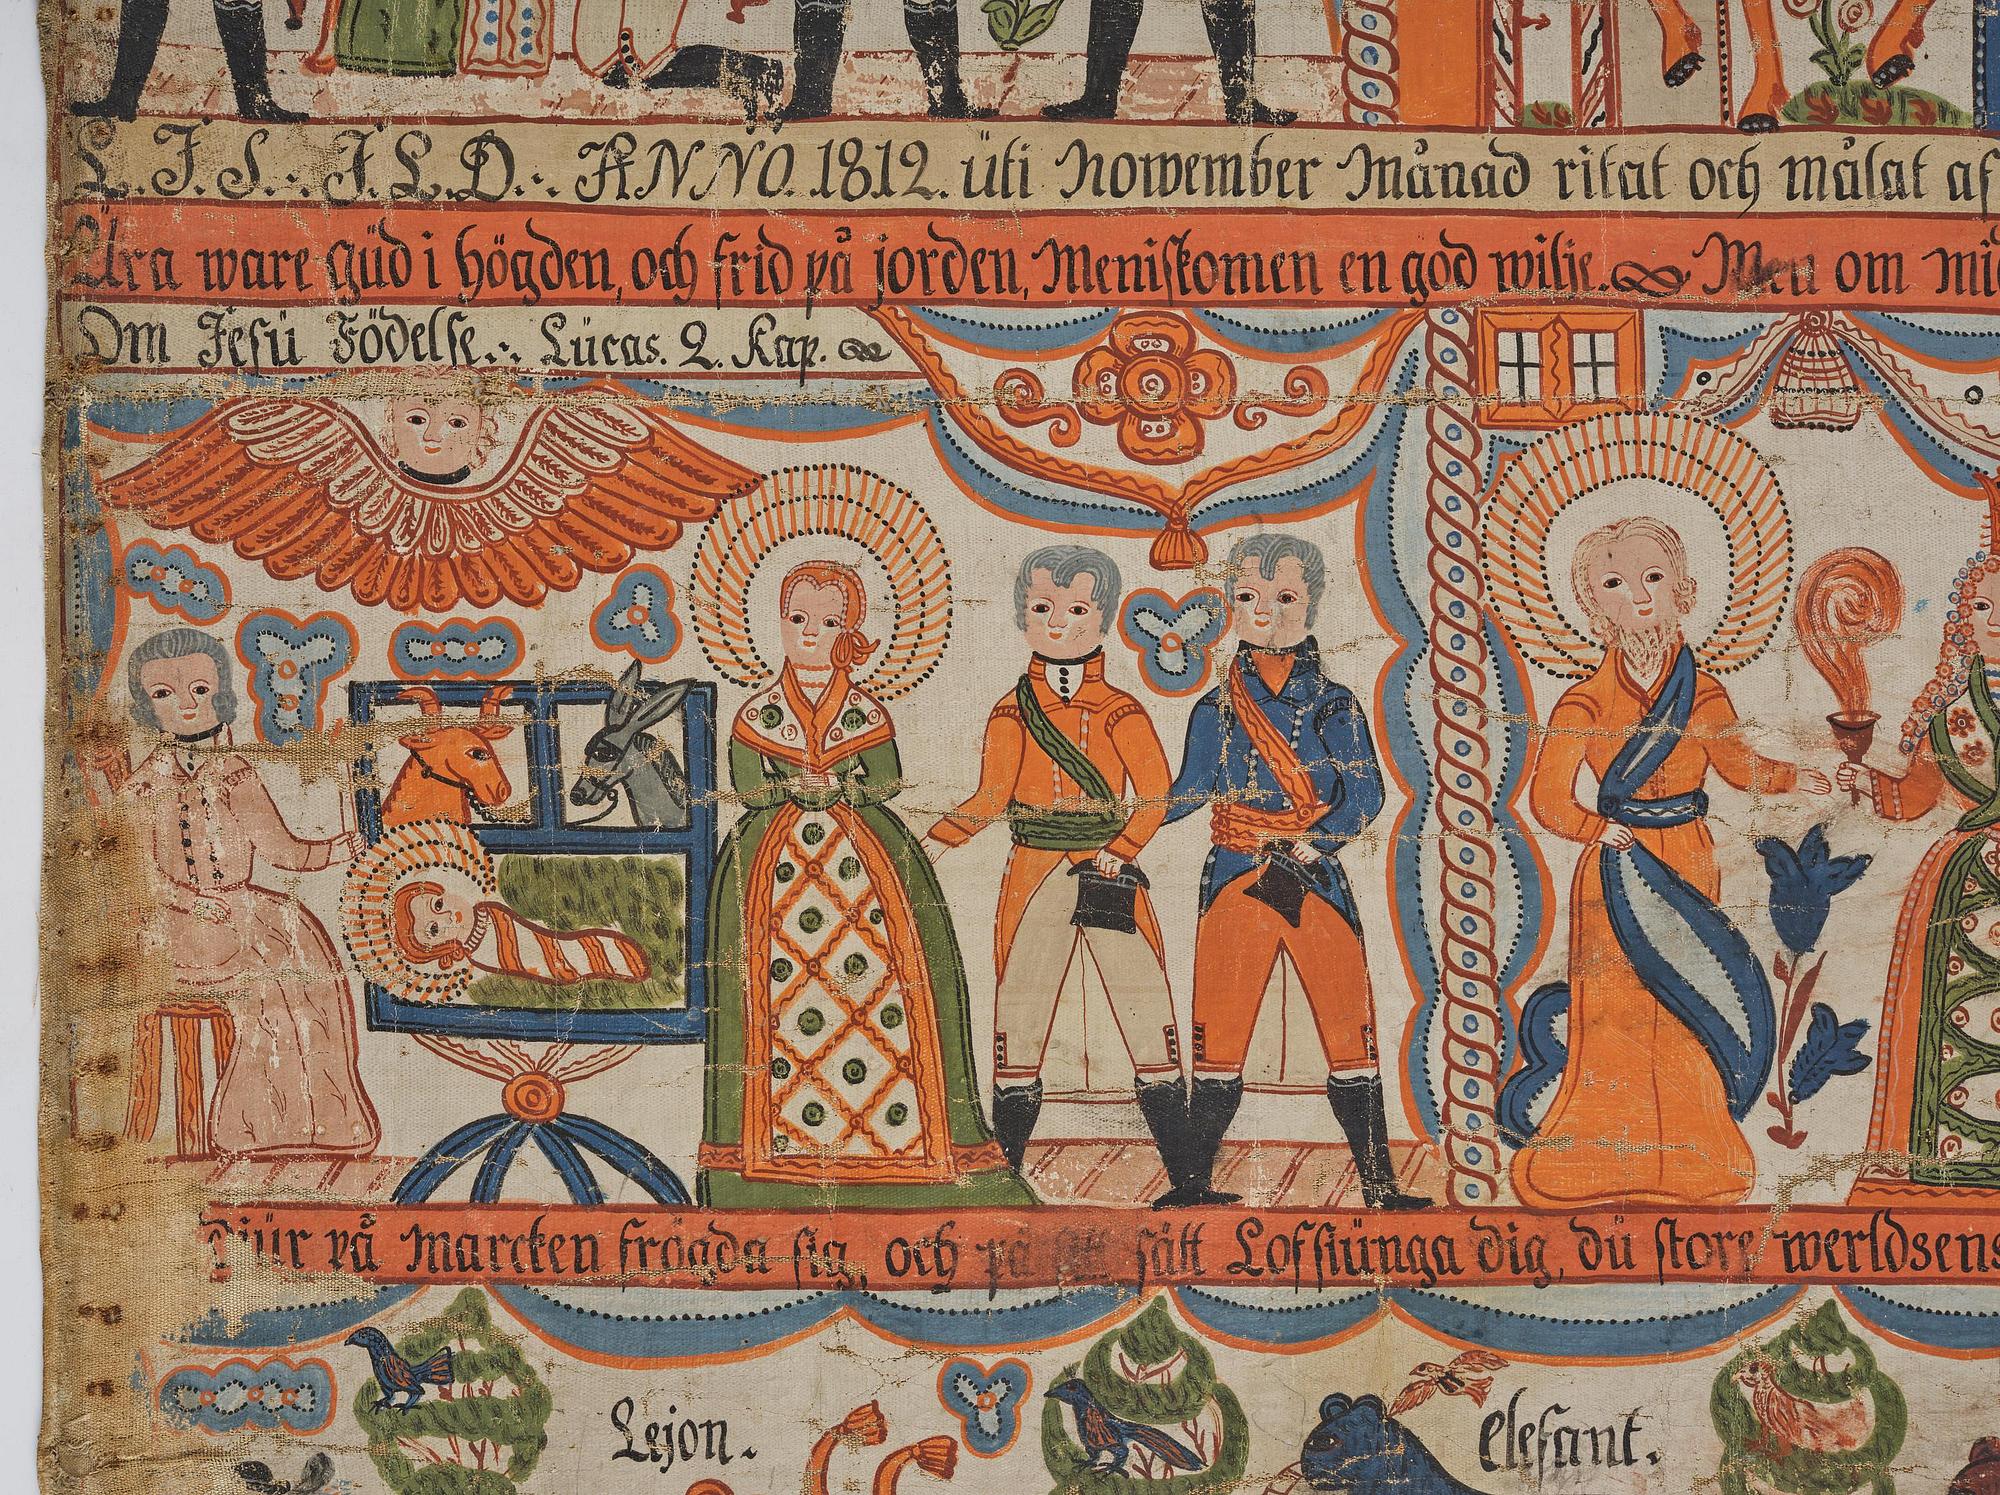 L. J. S.·. J. L. D.·. ANNO. 1812. üti Nowember Månad ritat och målat af
Ära ware güd i högden, och frid på jorden, Meniskomen en god wilje. Men om
Om Jesü Födelse.·. Lücas. 2. Kap.
Djür på Marcken frögda sig, och på sått Lofsiünga dig, dü store werldsens
Lejon.
elefant.